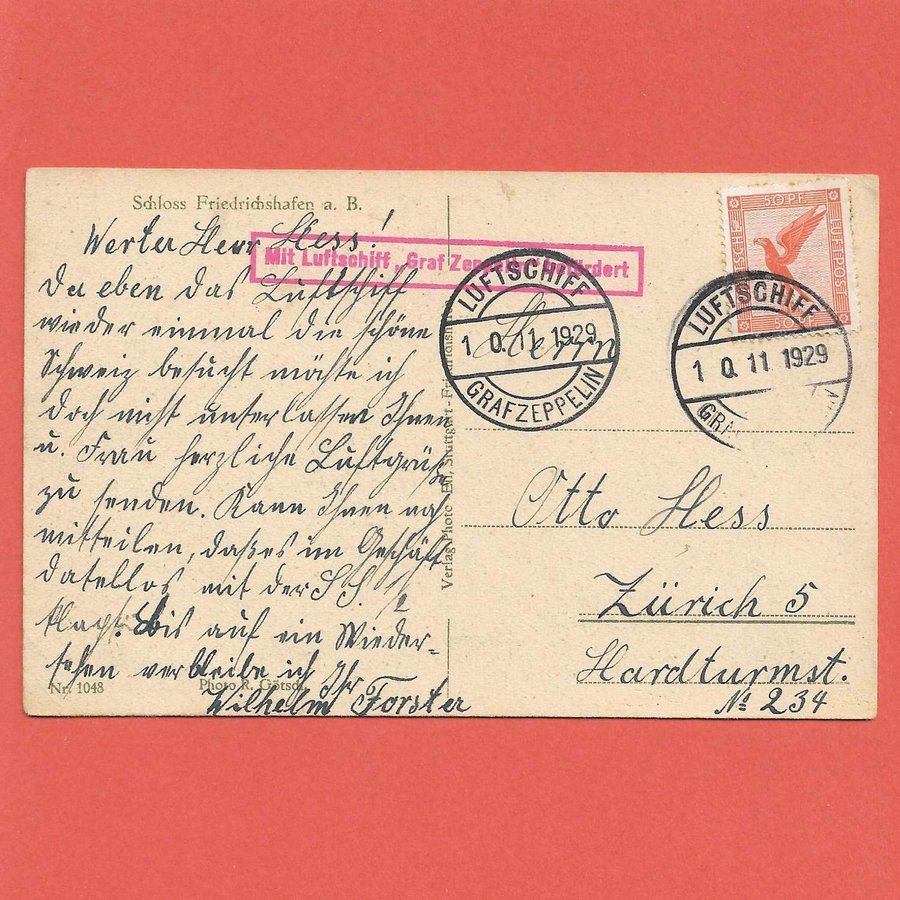 Schloss Friedrichshafen a. B.
Werter Herr Hess!
Da eben das Luftschiff
wieder einmal die schöne
Schweiz besucht möchte ich
doch nicht unterlassen Ihnen
u. Frau herzliche Luftgrüße
zu senden. Kann Ihnen noch
mitteilen, daß es im Geschäft
datellos mit der
klapt. bis auf ein Wieder-
sehen verbleibe ich Ihr
Wilhelm Forster
Nr. 1048
Photo R. Götsch
Mit Luftschiff „Graf Zeppelin" befördert
Verlag Photo Stuttgart-Friedrichsh
LUFTSCHIFF
10.11.1929
GRAFZEPPELIN
50 PF.
DEUTSCHE
LUFTPOST
50 PF
LUFTSCHIFF
10.11 1929
Herrn
Otto Hess
Zürich 5
Hardturmst.
№ 234